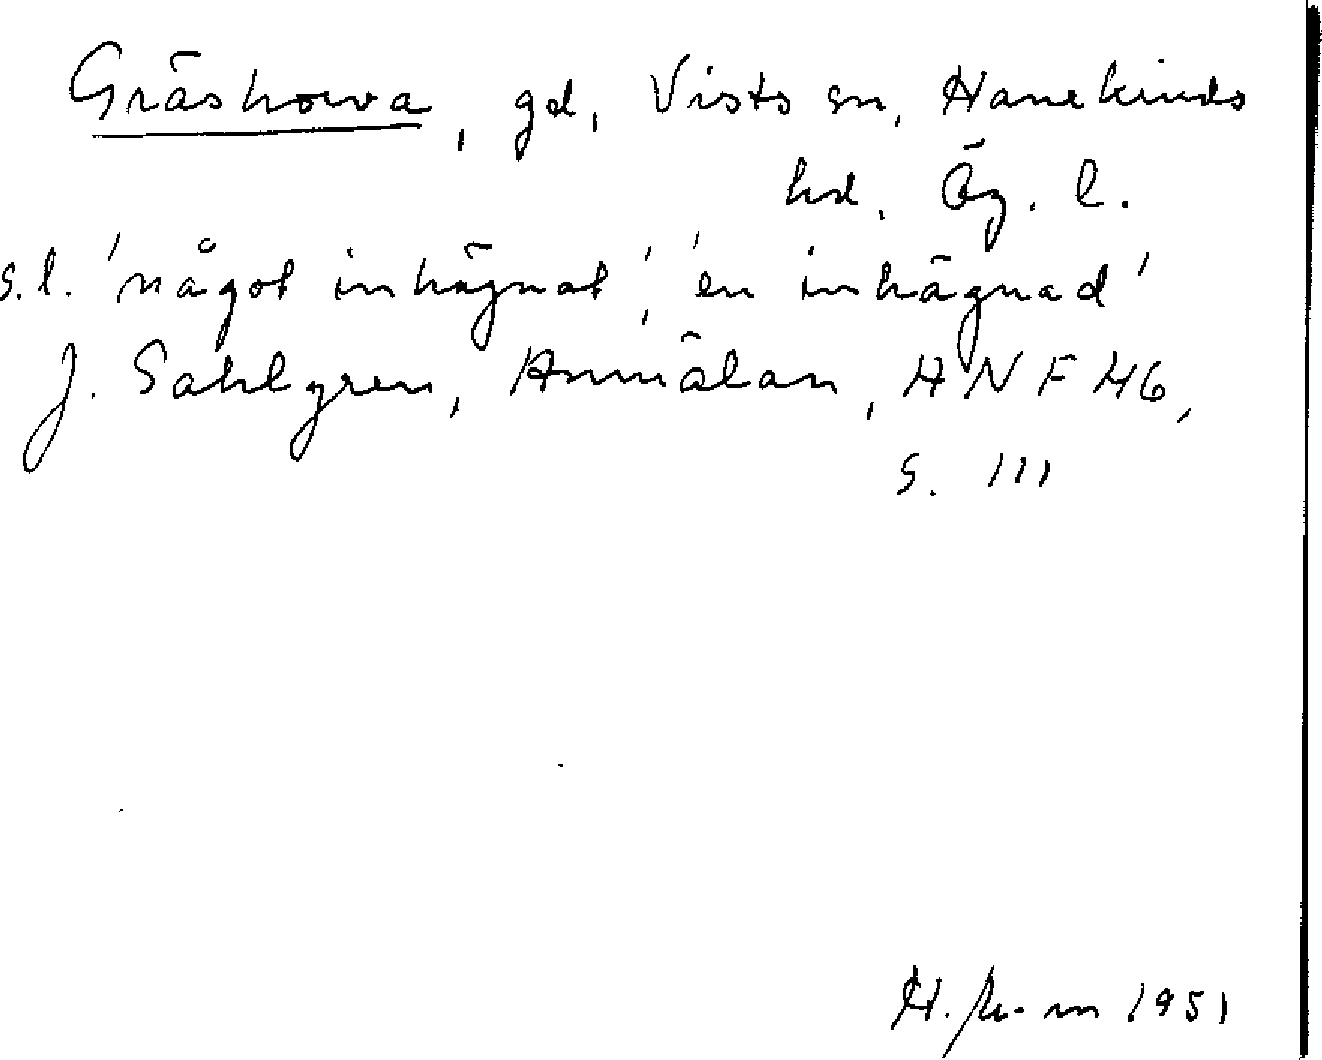 Gräshowa, gd, Vists sn, Hanekinds
hd, Ög. l.
s.l. 'något inhägnat', 'en inhägnad'
J. Sahlgren, Anmälan, ANF 46,
s. 111
H. 1951